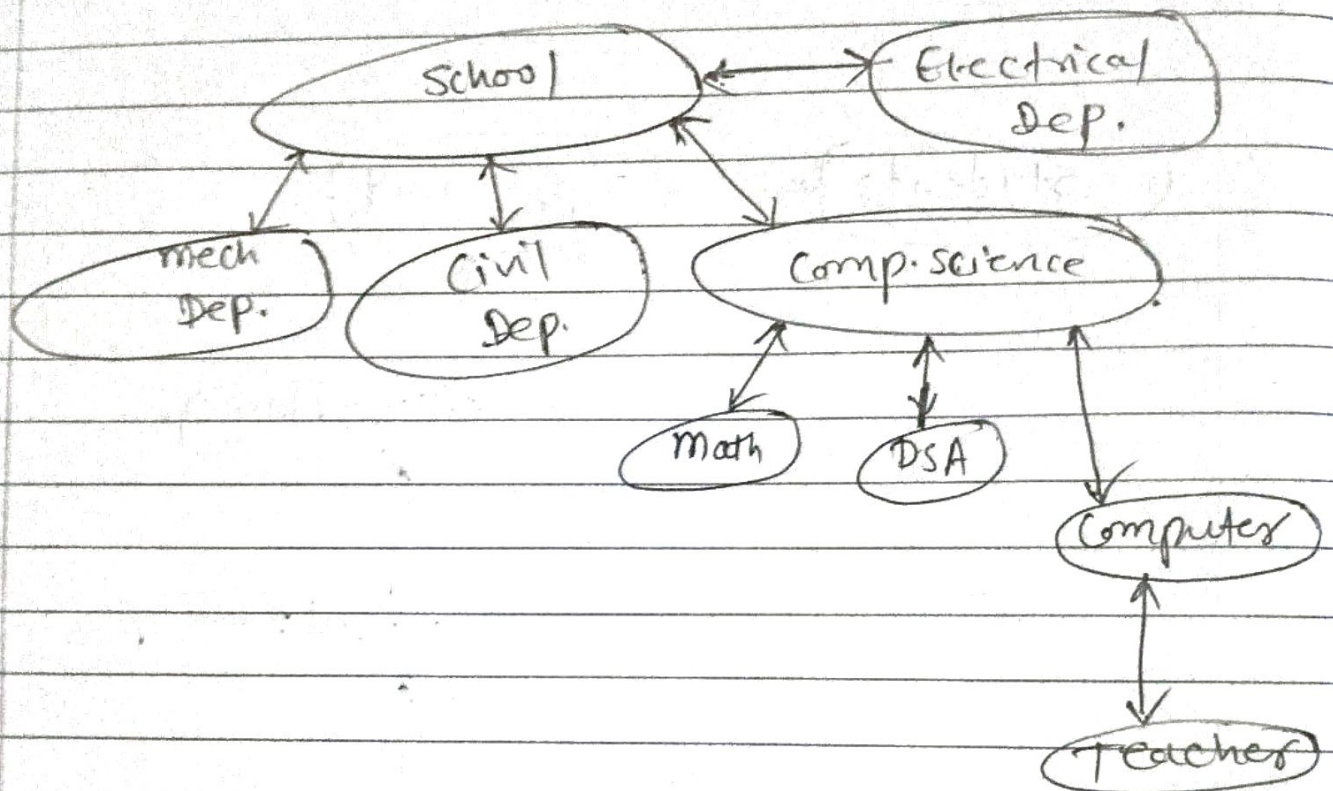 School
Electrical
Dep.
Mech
Dep.
Civil
Dep.
Comp. Science
Math
DSA
Computer
Teacher